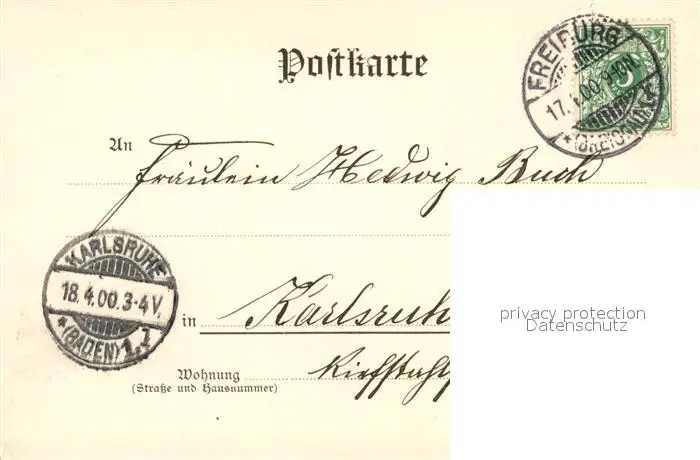 Postkarte
FREIBURG
17.4.00.9-10N.
*(BREISGAU)*
An
Fräulein Hedwig Buch
KARLSRUHE
18.4.00.3-4V.
*(BADEN)1.J
in Karlsruh
privacy protection
Datenschutz
Wohnung
(Straße und Hausnummer)